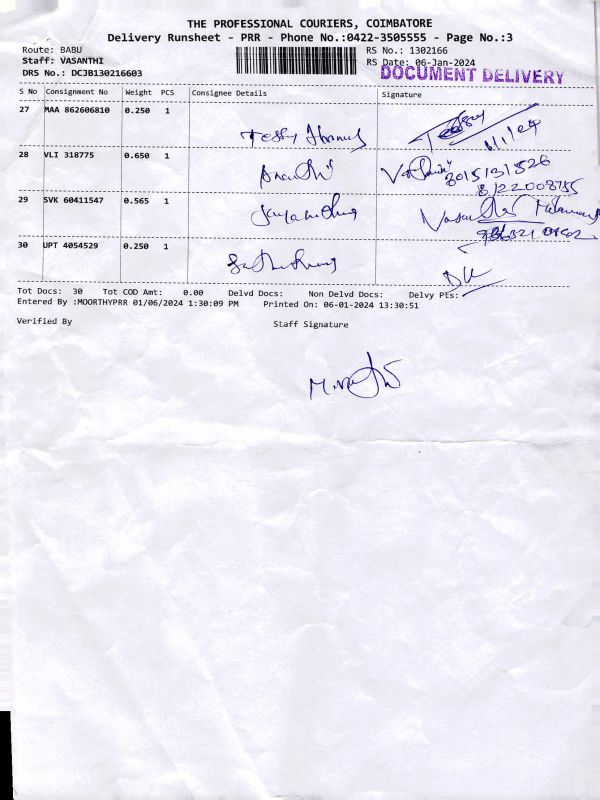 THE PROFESSIONAL COURIERS, COIMBATORE
Delivery Runsheet - PRR - Phone No.:0422-3505555 - Page No.:3
Route: BABU RS No.: 1302166
Staff: VASANTHI RS Date: 06-Jan-2024
DRS No.: DCJB130216603 DOCUMENT DELIVERY
S No Consignment No Weight PCS Consignee Details Signature
27 MAA 862606810 0.250 1
28 VLI 318775 0.650 1
29 SVK 60411547 0.565 1
30 UPT 4054529 0.250 1
Tot Docs: 30 Tot COD Amt: 0.00 Delvd Docs: Non Delvd Docs: Delvy Pts:
Entered By :MOORTHYPRR 01/06/2024 1:30:09 PM Printed On: 06-01-2024 13:30:51
Verified By Staff Signature